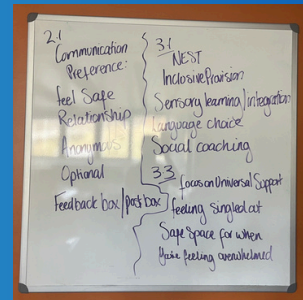 2.1
Communication
Preference:
feel Safe
Relationship
Anonymous
Optional
Feedback box/post box
3.1
NEST
Inclusive Provision
Sensory learning/integration
Language choice
Social coaching
3.3
focus on Universal Support
feeling singled out
Safe Space for when
you're feeling overwhelmed